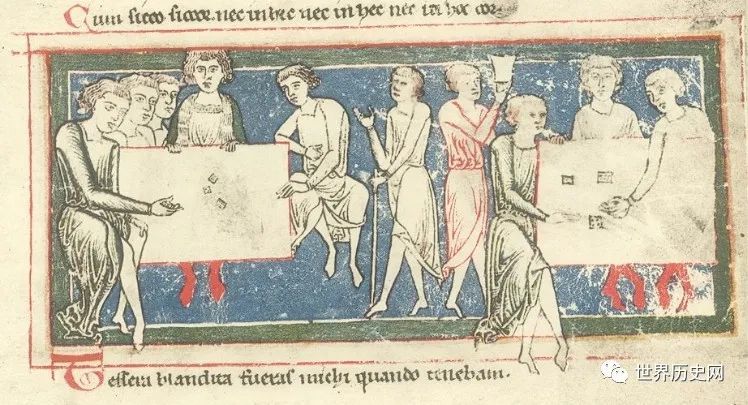 Cum sicco siccor. nec in hic nec in hec nec in hoc cor.
Tessera blandita fueras michi quando tenebam.
世界历史网